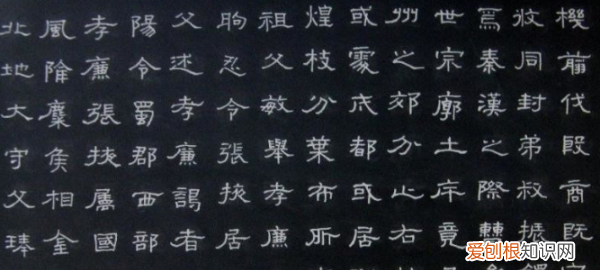 機翦伐殷商既
攸同封弟叔振鐸
焉秦漢之際
世宗廓土斥竟
州之郊分止右
或處武都或居
煌枝分葉布所
祖父敏舉孝廉
朐忍令張掖居
父述孝廉謁者
陽令蜀郡西部
孝廉張掖屬國
風隃麋侯相金
北地大守父琫
爱刨根知识网